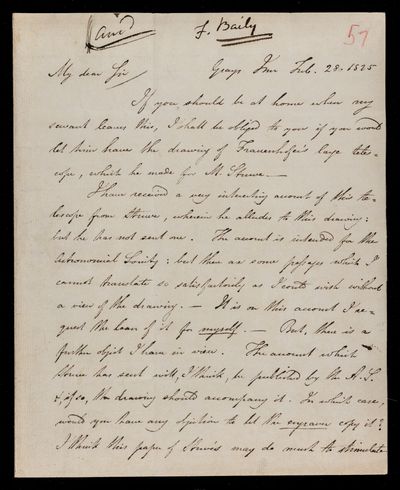 and F. Baily 57
Grays Inn Feb. 28. 1825
My dear Sir
If you should be at home when my
servant leaves this, I shall be obliged to you if you would
let him have the drawing of Frauenhofer's large teles-
cope, which he made for M. Struve. —
I have received a very interesting account of this te-
lescope from Struve, wherein he alludes to this drawing:
but he has not sent one. The account is intended for the
Astronomical Society: but there are some passages which I
cannot translate so satisfactorily as I could wish without
a view of the drawing. — It is on this account I re-
quest the loan of it for myself. — But, there is a
further object I have in view. The account which
Struve has sent will, I think, be published by the A. S.
& if so, the drawing should accompany it. In which case,
would you have any objection to let the engraver copy it?
I think this paper of Struve's may do much to stimulate